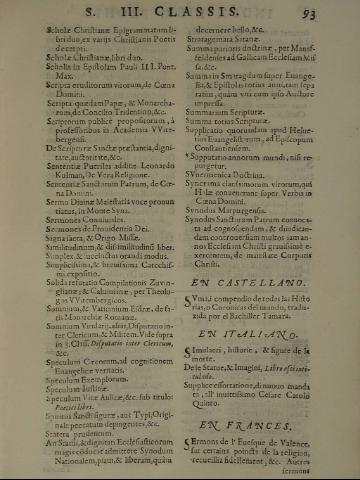 S. III. CLASSIS. 93
Scholæ Christianæ Epigrammatum libri duo, ex varijs Christianis Poetis decerpti.
Scholæ Christianæ, libri duo.
Scholia in Epistolam Pauli III. Pont. Max.
Scripta eruditorum virorum, de Cœna Domini.
Scripta quædam Papæ, & Monarcharum, de Concilio Tridentino, &c.
Scriptorum publicè propositorum, à professoribus in Academia VVitebergensi.
De Scripturæ Sanctæ præstantia, dignitate, authoritate, &c.
Sententiæ Pueriles additæ Leonardo Kulman, De Vera Religione.
Sententiæ Sanctorum Patrum, de Cœna Domini.
Sermo Divinæ Maiestatis voce pronuntiatus, in Monte Syna.
Sermones Conviuales.
Sermones de Prouidentia Dei.
Signa sacra, & Origo Missæ.
Similitudinum, & dissimilitudinũ liber.
Simplex, & succinctus orandi modus.
Simplicissima, & breuissima Catechismi expositio.
Solida refutatio Compilationis Zuvinglianæ, & Caluinianæ, per Theologos VVitembergicos.
Somnium, & Vaticinium Esdræ, de statu Monarchiæ Romanæ.
Somnium Viridarij, aliàs, Disputatio inter Clericum, & Militem. Vide supra in 3. Class. Disputatio inter Clericum, &c.
Speculum Cæcorum, ad cognitionem Euangelicæ veritatis.
Speculum Exemplorum.
Speculum Iustitiæ.
Speculum Vitæ Aulicæ, &c. sub titulo: Poetici libri.
Spiritus Sancti figuræ, aut Typi, Originale peccatum depingentes, &c.
Statera prudentum.
An Statui, & dignitati Ecclesiasticorum magis conducat admittere Synodum Nationalem, piam, & liberam, quàm
decernere bello, &c.
Stratagemata Satanæ.
Summa purioris doctrinæ, per Mansfeldenses ad Gallicam Ecclesiam Missa, &c.
Summa in Stratagdum super Euangelia, & Epistolas totius anni, tam separatim, quàm vnà cum ipso Auctore impressa.
Summarium Scripturæ.
Summa totius Scripturæ.
Supplicatio quorundam apud Heluetios Euangelistarum, ad Episcopum Constantiensem.
Supputatio annorum mundi, nisi repurgetur.
SVuermerica Doctrina.
Syncerima clarissimorum virorum, qui Hilæ conuenerant super Verbis in Cœna Domini.
Synodus Marpurgensis.
Synodus Sanctorum Patrum conuocata ad cognoscendam, & diiudicandam controuersiam multos iam annos Ecclesiam Christi grauissimè exercentem, de maiestate Corporis Christi.
EN CASTELLANO.
SVma, i compendio de todas las Historias, o Coronicas del mundo, traduzida por el Bachiller Tamara.
EN ITALIANO.
SImolacri, historie, & figure de la morte.
De le Statue, & Imagini, Libro essi intitulado.
Supplicæ essortatione, di nuouo mandata, all' inuittissimo Cesare Carolo Quinto.
EN FRANCES.
SErmons de l'Euesque de Valence, sur certains poincts de la religion, recueillis fidellement, &c. Autres
sermons